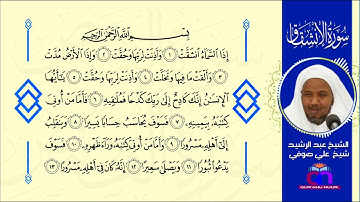 بِسْمِ اللَّهِ الرَّحْمَٰنِ الرَّحِيمِ
إِذَا السَّمَاءُ انشَقَّتْ ١ وَأَذِنَتْ لِرَبِّهَا وَحُقَّتْ ٢ وَإِذَا الْأَرْضُ مُدَّتْ
٣ وَأَلْقَتْ مَا فِيهَا وَتَخَلَّتْ ٤ وَأَذِنَتْ لِرَبِّهَا وَحُقَّتْ ٥ يَا أَيُّهَا
الْإِنسَانُ إِنَّكَ كَادِحٌ إِلَىٰ رَبِّكَ كَدْحًا فَمُلَاقِيهِ ٦ فَأَمَّا مَنْ أُوتِيَ
كِتَابَهُ بِيَمِينِهِ ٧ فَسَوْفَ يُحَاسَبُ حِسَابًا يَسِيرًا ٨ وَيَنقَلِبُ
إِلَىٰ أَهْلِهِ مَسْرُورًا ٩ وَأَمَّا مَنْ أُوتِيَ كِتَابَهُ وَرَاءَ ظَهْرِهِ ١٠ فَسَوْفَ
يَدْعُو ثُبُورًا ١١ وَيَصْلَىٰ سَعِيرًا ١٢ إِنَّهُ كَانَ فِي أَهْلِهِ مَسْرُورًا ١٣
سورة الانشقاق
الشيخ عبد الرشيد
شيخ علي صوفي
QUR'ANU NUUR